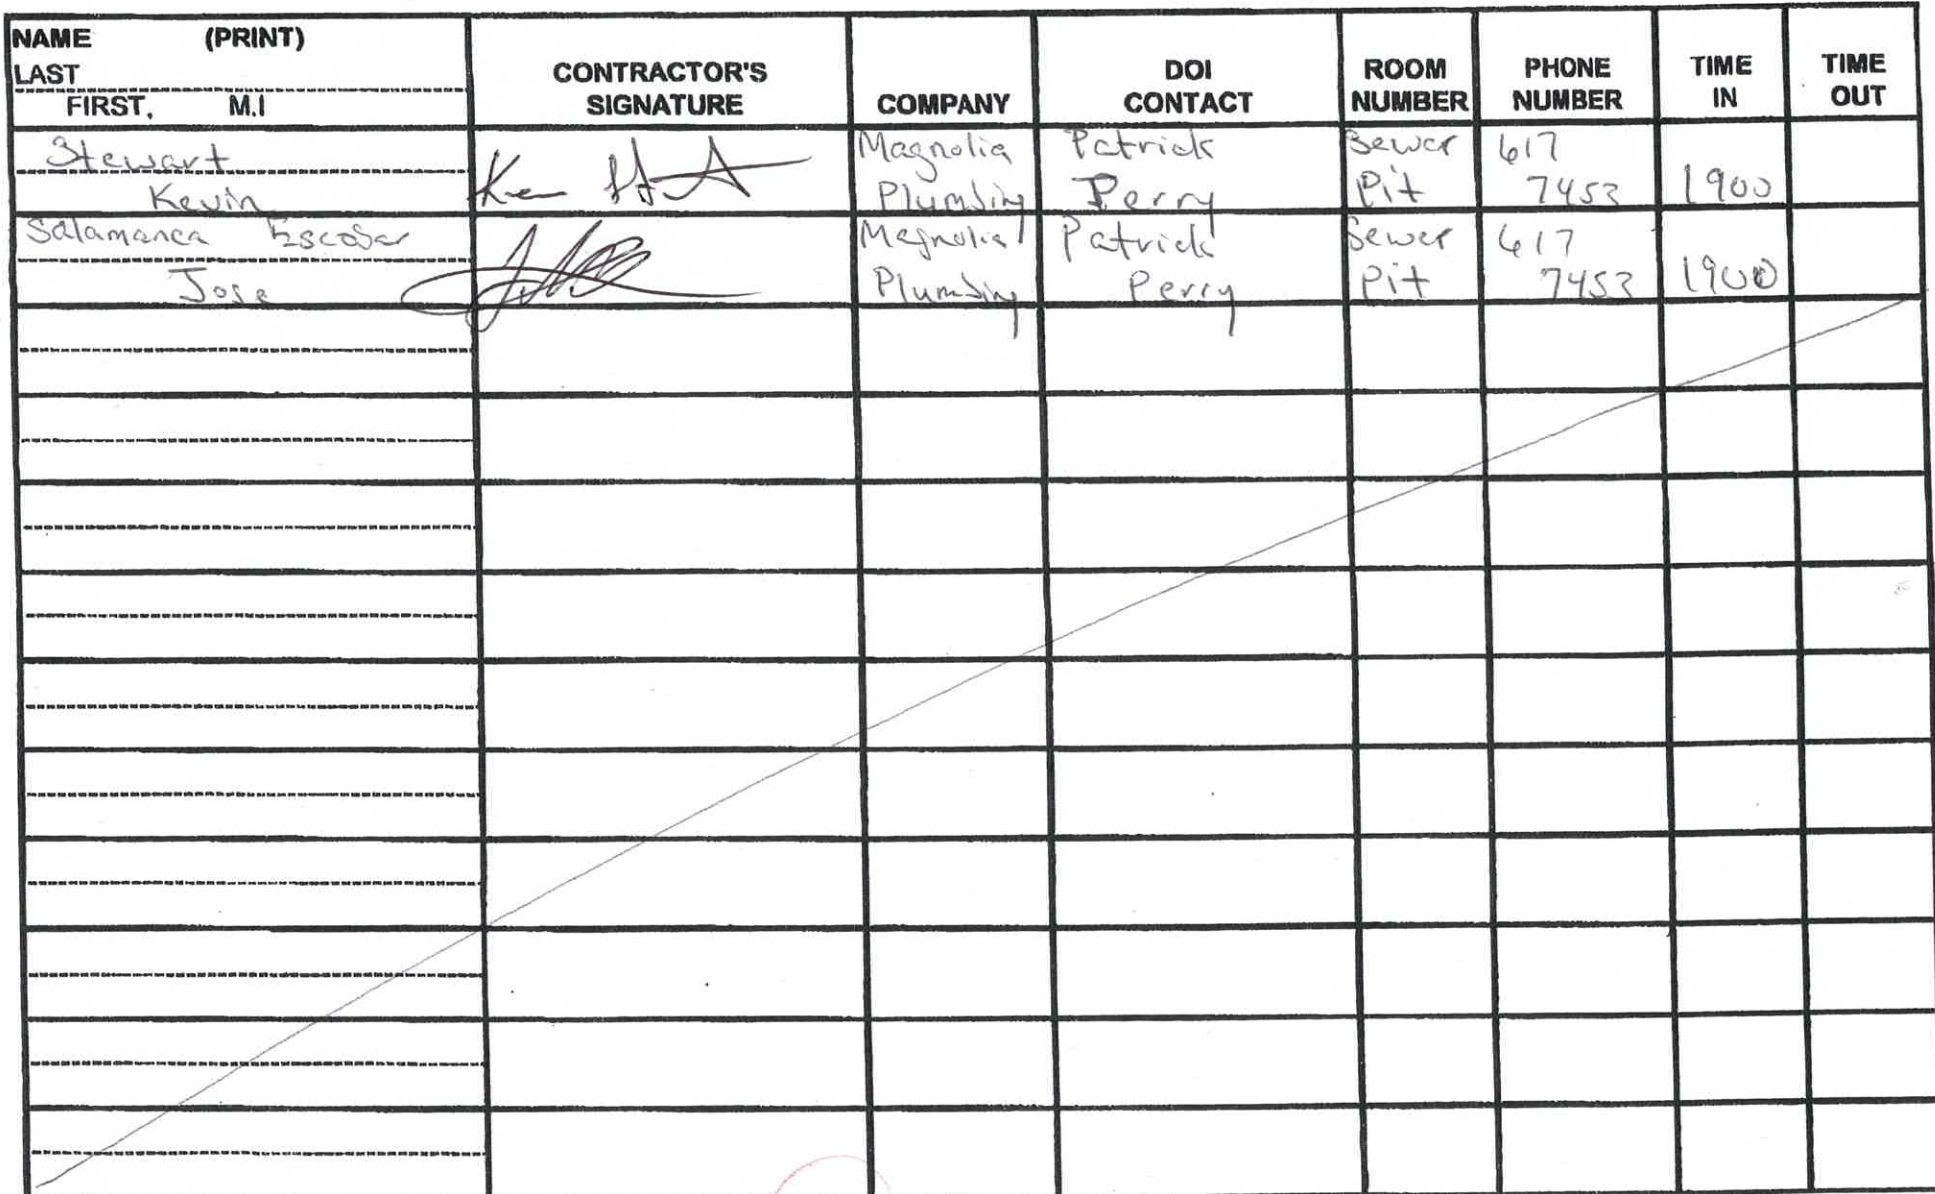 NAME (PRINT)
LAST
FIRST, M.I
CONTRACTOR'S
SIGNATURE
COMPANY
DOI
CONTACT
ROOM
NUMBER
PHONE
NUMBER
TIME
IN
TIME
OUT
Stewart
Kevin
Magnolia
Plumbing
Patrick
Perry
Sewer
Pit
617
7453
1900
Salamanca Escobar
Jose
Magnolia
Plumbing
Patrick
Perry
Sewer
Pit
617
7453
1900